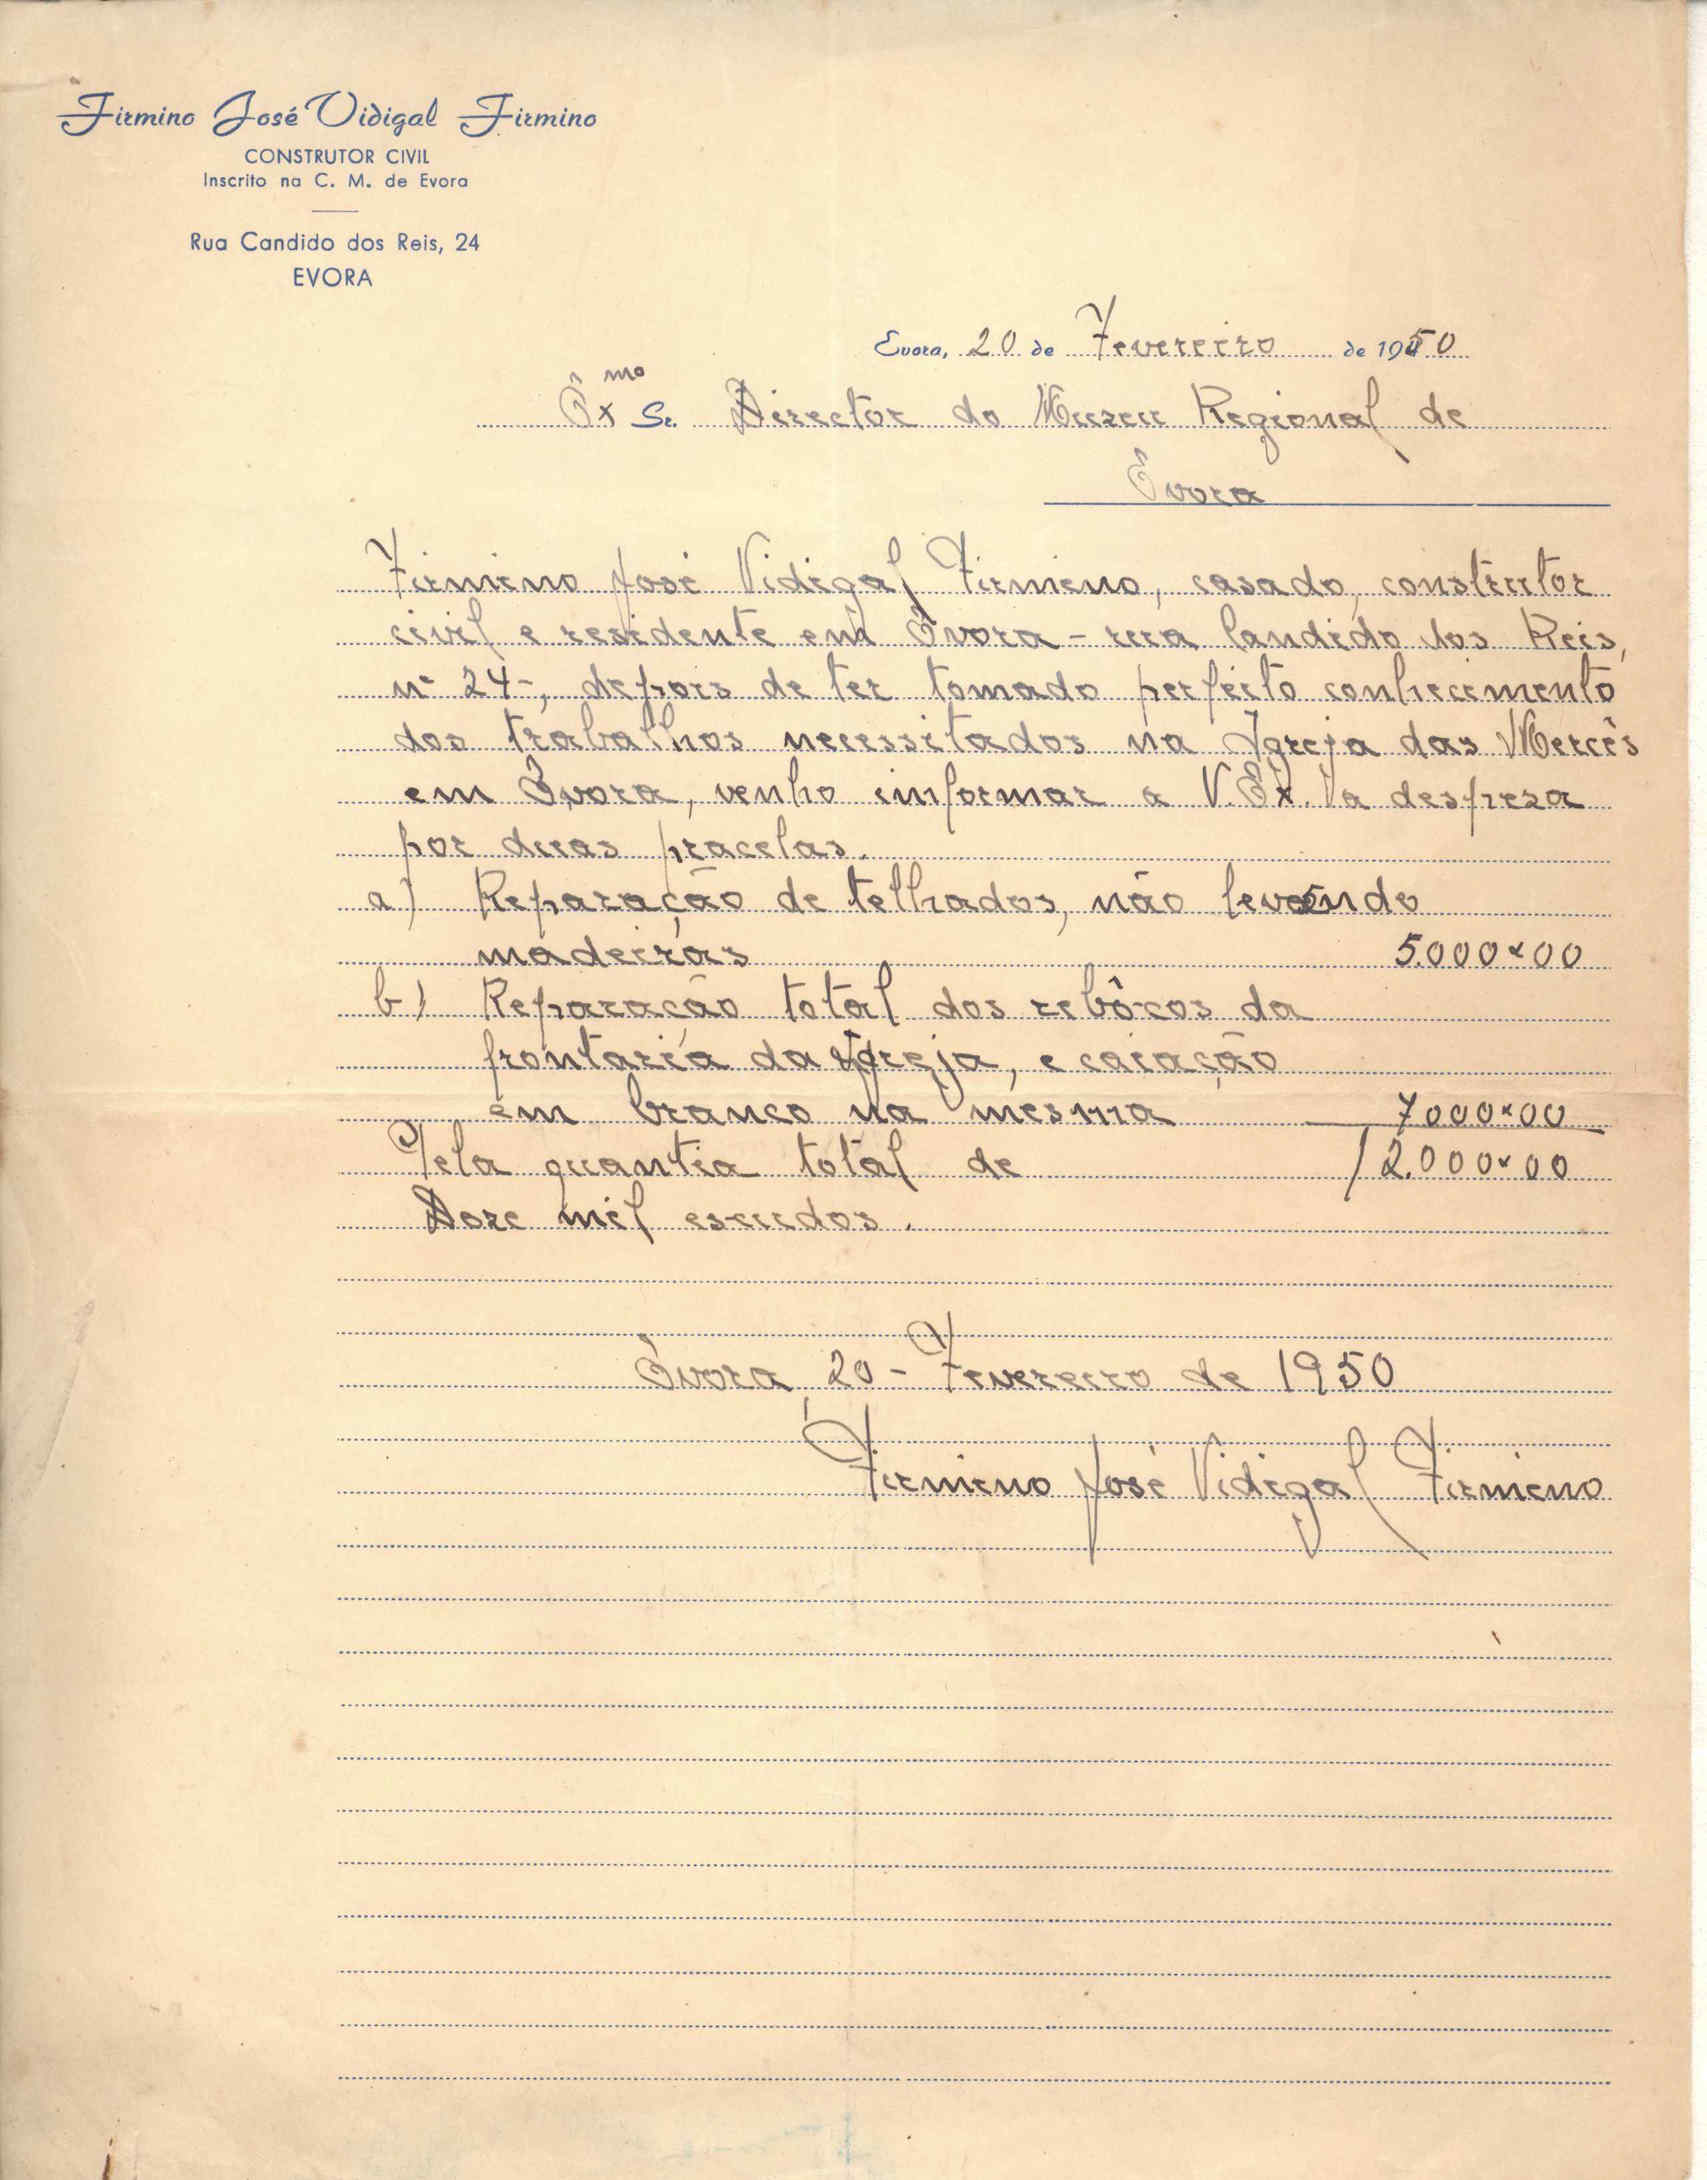 Firmino José Vidigal Firmino
CONSTRUTOR CIVIL
Inscrito na C. M. de Evora
Rua Candido dos Reis, 24
EVORA
Evora, 20 de Fevereiro de 1950
Exmo Sr. Director do Muzeu Regional de
Évora
Firmino José Vidigal Firmino, casado, construtor
civil e residente em Évora - rua Candido dos Reis,
nº 24-, depois de ter tomado perfeito conhecimento
dos trabalhos necessitados na Igreja das Mercês
em Évora, venho informar a V. Ex. a despeza
por duas pracelas.
a) Reparação de telhados, não levando
madeiras 5.000$00
b) Reparacão total dos rebôcos da
frontaria da Igreja, e caiação
em branco na mesma 7000$00
Pela quantia total de 12.000$00
Doze mil escudos.
Évora, 20 - Fevereiro de 1950
Firmino José Vidigal Firmino